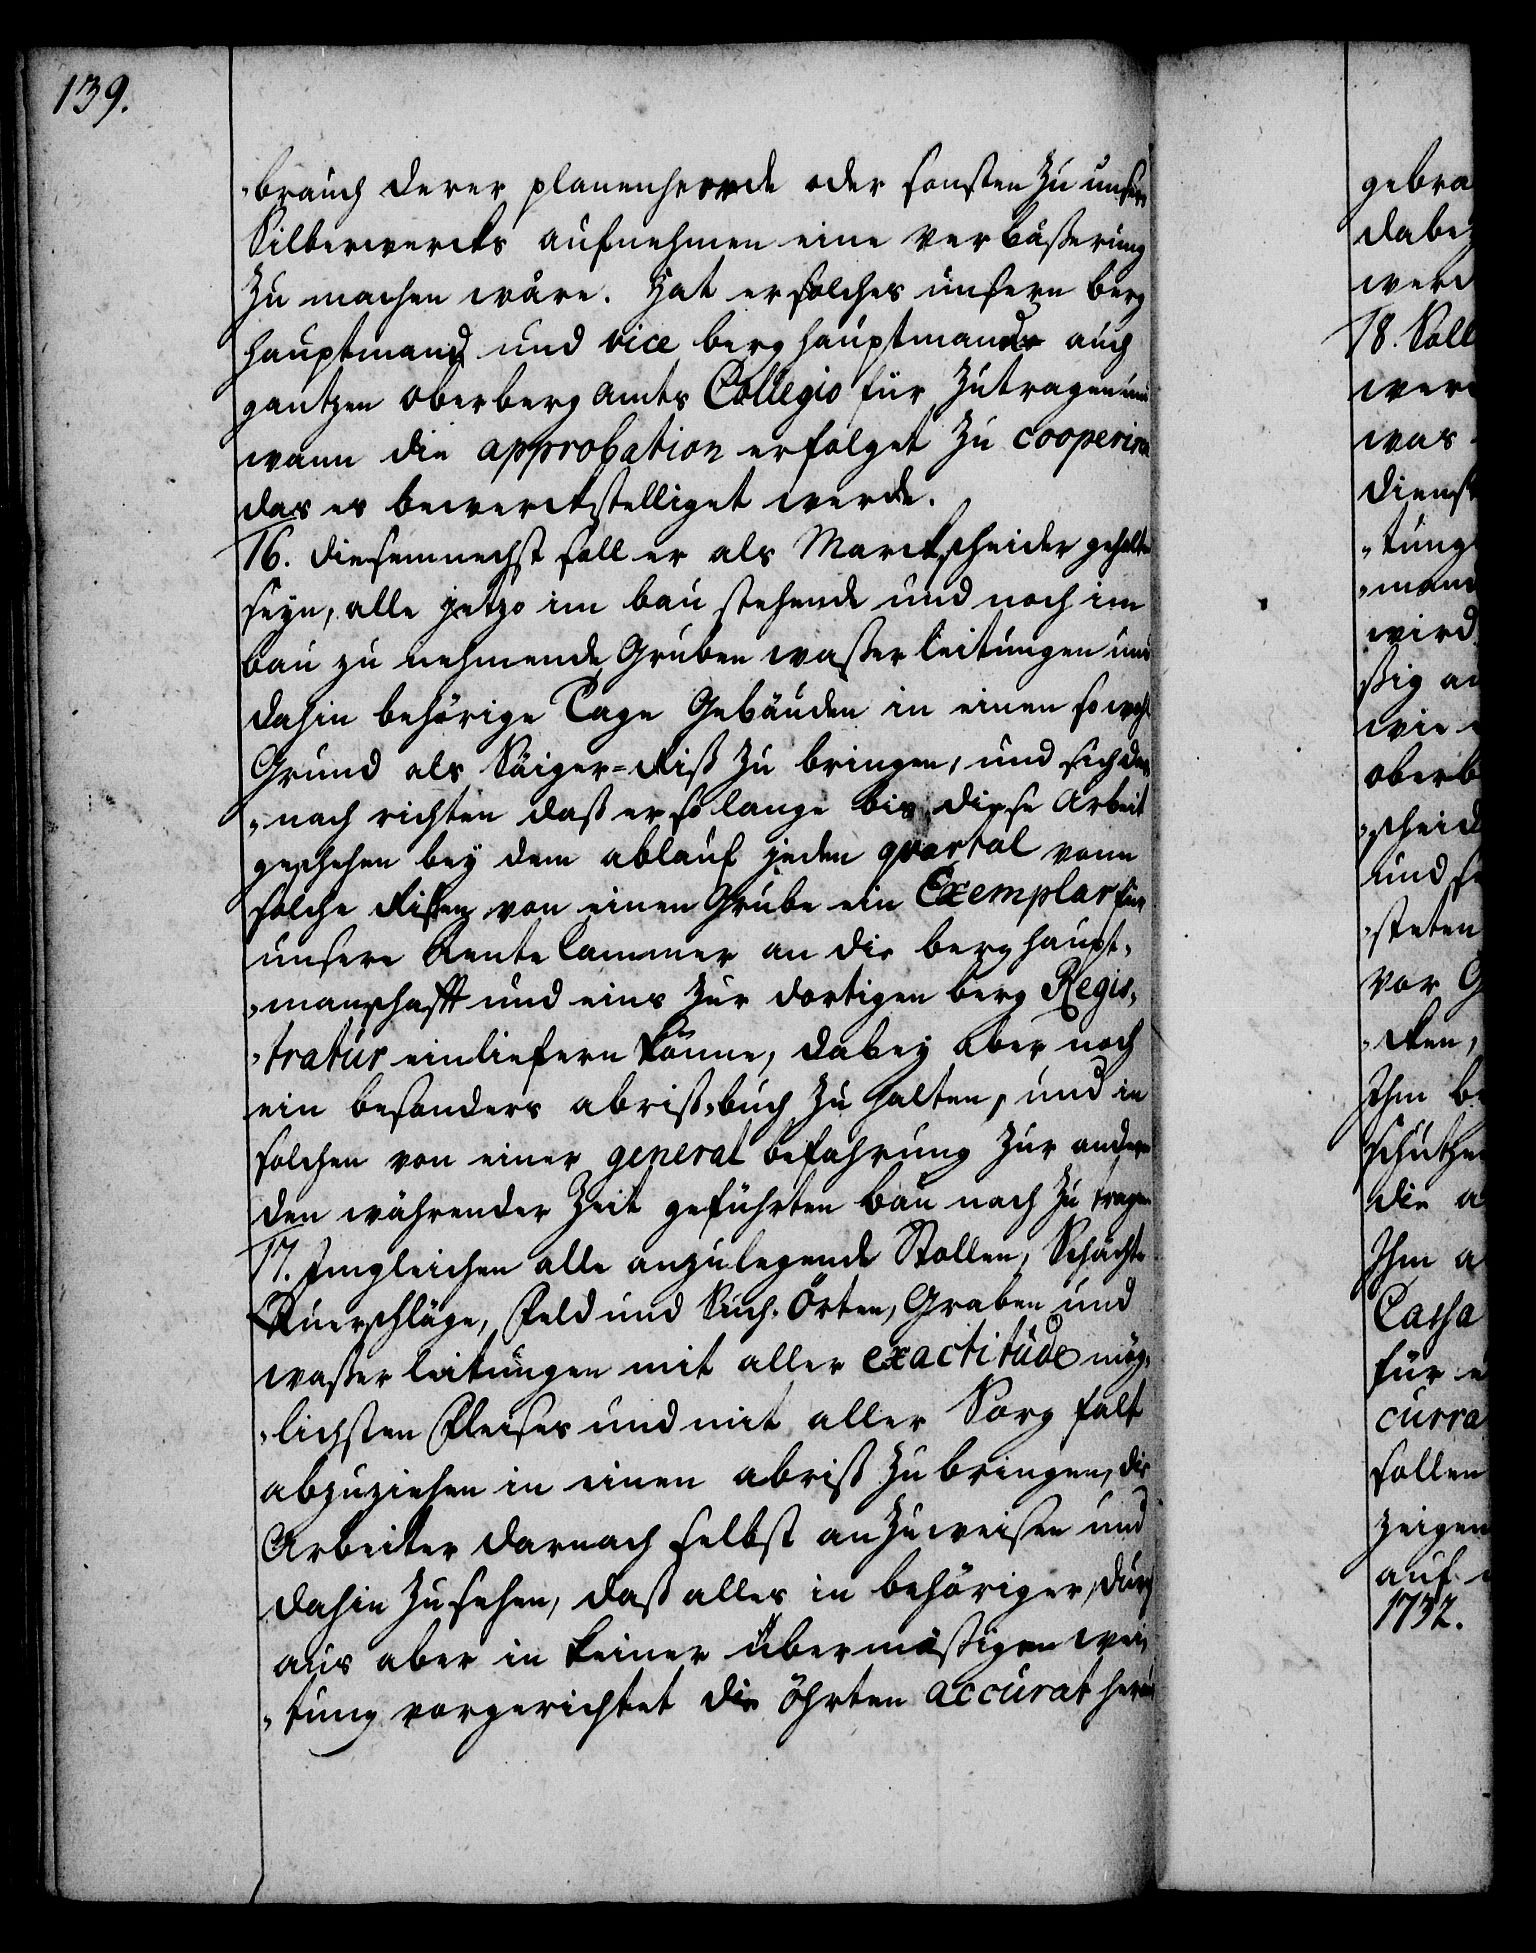 139.
"brauch derer planenherde oder sonsten zu unsers
Silberwercks aufnehmen eine verbäßerung
zu machen wäre. Hat er solches unsern berg
hauptmand und vice berghauptmande auch
gantzen oberberg amts Collegio für zutragen und
wann die approbation erfolget zu cooperiren
das es bewerckstelliget werde.
16. diesemnechst soll er als Marckscheider gehalten
seyn, alle jetzo im bau stehende und noch im
bau zu nehmende Gruben waßer leitungen und
dahin behörige Tage Gebäuden in einen so wohl
Grund als Säiger-Riß zu bringen, und sich dar
"nach richten daß er so lange bis diese Arbeit
geschehen bey dem ablauf jeden quartal vonn
solche Rißen von einen Grube ein Exemplar für
unsere Rente Cammer an die berghaupt"
"manschafft und eins zur dortigen berg Regis"
"tratur einliefern könne, dabey aber noch
ein besonders abriß-buch zu halten, und in
solchen von einer general befahrung zur andern
den währender Zeit geführten bau nach zu tragen
17. Imgleichen alle anzulegende Stollen, Schächte
Querschläge, Feld und Such-Örten, Graben und
waßer leitungen mit aller exactitüde mög"
"lichsten Fleises und mit aller Sorgfalt
abzuziehen in einen abriß zu bringen, die
Arbeiter darnach selbst anzuweisen und
dahin zu sehen, daß alles in behöriger, durch
aus aber in keiner übermäßigen wei"
"tung vorgerichtet die öhrten accurat herau
gebra
dabey
werd
18. Soll
were
was
dienst
"tung
"man
wird
ßig an
wie
oberb
"scheid
und
"steten
vor G
"cken,
Ihm be
schutze
die a
Ihm a
Cassa
für e
curra
sollen
zeigen
auf
1732.